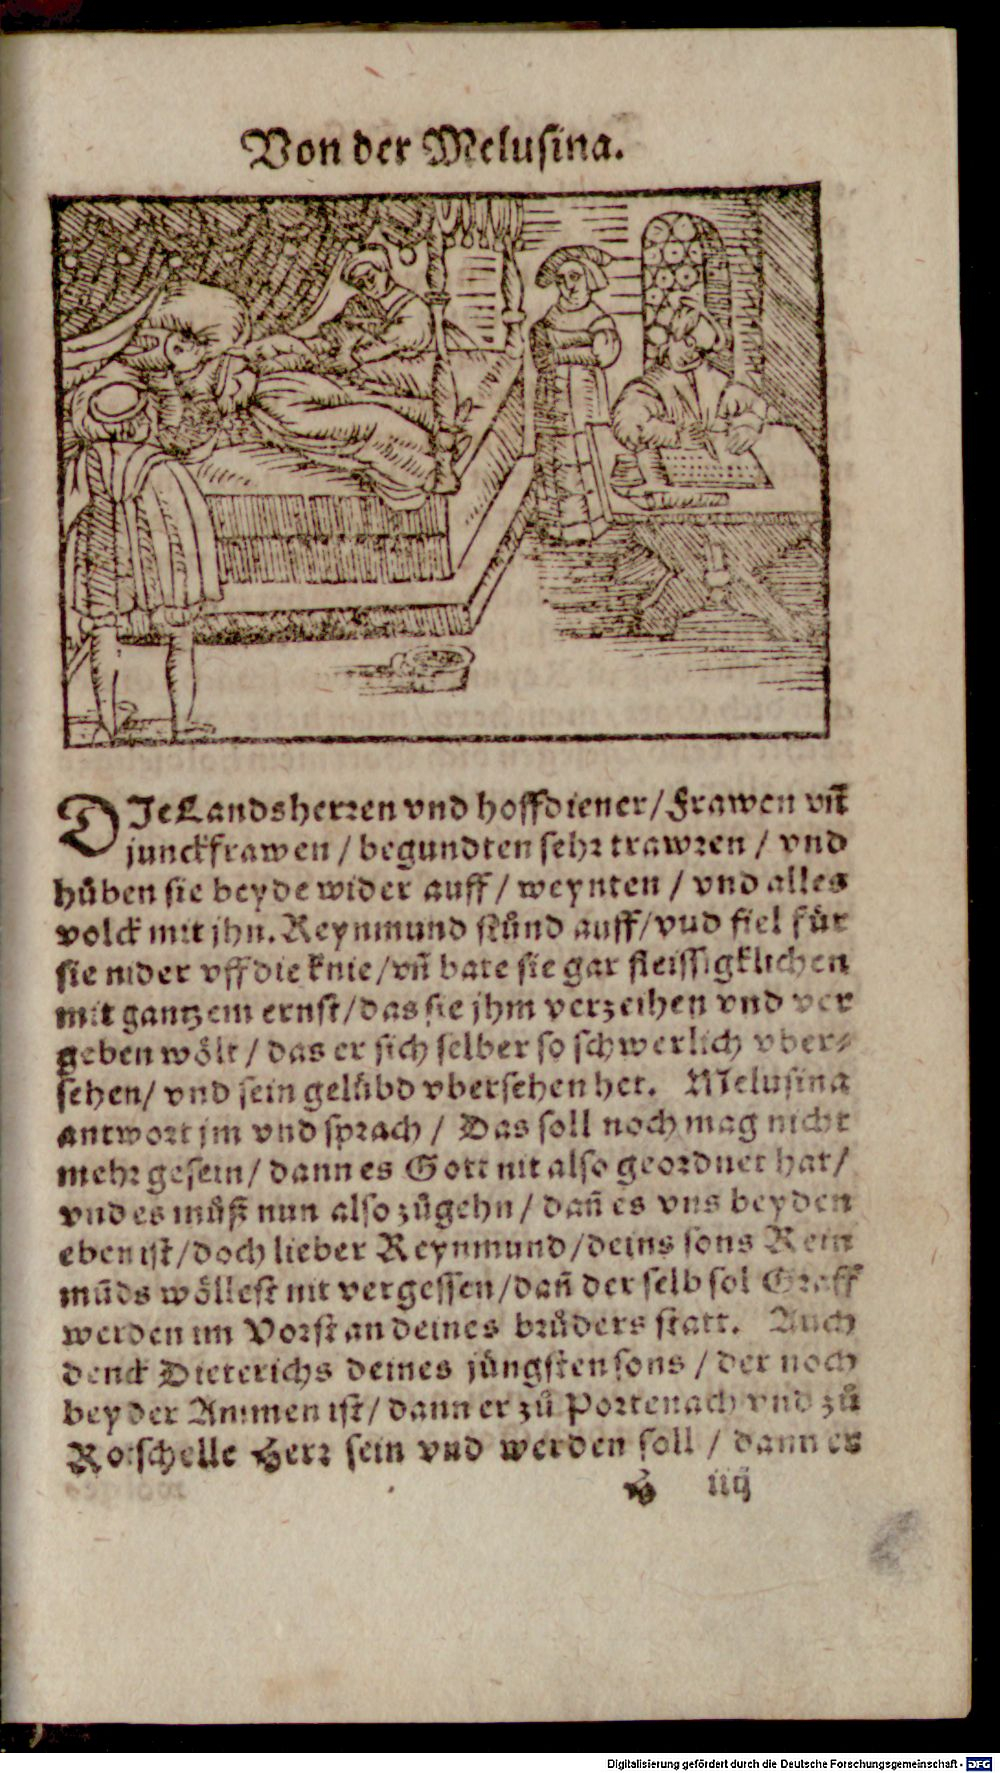 Von der Melusina.
DIe Landsherꝛen vnd hoffdiener/ Frawen vñ
junckfrawen / begundten sehꝛ trawꝛen / vnd
hůben sie beyde wider auff / weynten / vnd alles
volck mit jhn. Reynmund stůnd auff/ vud fiel für
sie nider vff die knie/ vñ bate sie gar fleissigklichen
mit gantzem ernst/ das sie jhm verzeihen vnd ver
geben wölt / das er sich selber so schwerlich vber⸗
sehen/ vnd sein gelübd vbersehen het. Melusina
antwoꝛt jm vnd spꝛach / Das soll noch mag nicht
mehꝛ gesein/ dann es Gott nit also geoꝛdnet hat/
vnd es můß nun also zůgehn / dañ es vns beyden
eben ist/ doch lieber Reynmund/ deins sons Rein
mūds wöllest nit vergessen/ dañ der selb sol Graff
werden im Voꝛst an deines bꝛůders statt. Auch
denck Dieterichs deines jüngsten sons / der noch
bey der Ammen ist/ dann er zů Poꝛtenach vnd zů
Rotschelle Herꝛ sein vnd werden soll / dann es
H iiij
Digitalisierung gefördert durch die Deutsche Forschungsgemeinschaft - DFG